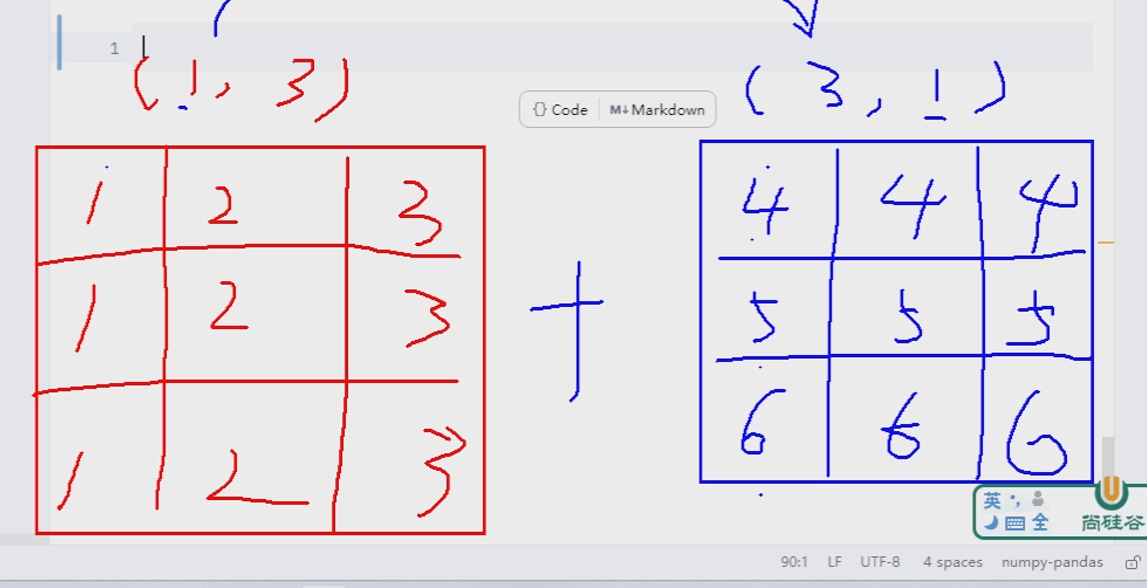 1
(1, 3)
(3, 1)
{} Code M↓Markdown
1 2 3
1 2 3
1 2 3
+
4 4 4
5 5 5
6 6 6
英 •,
全
尚硅谷
90:1 LF UTF-8 4 spaces numpy-pandas